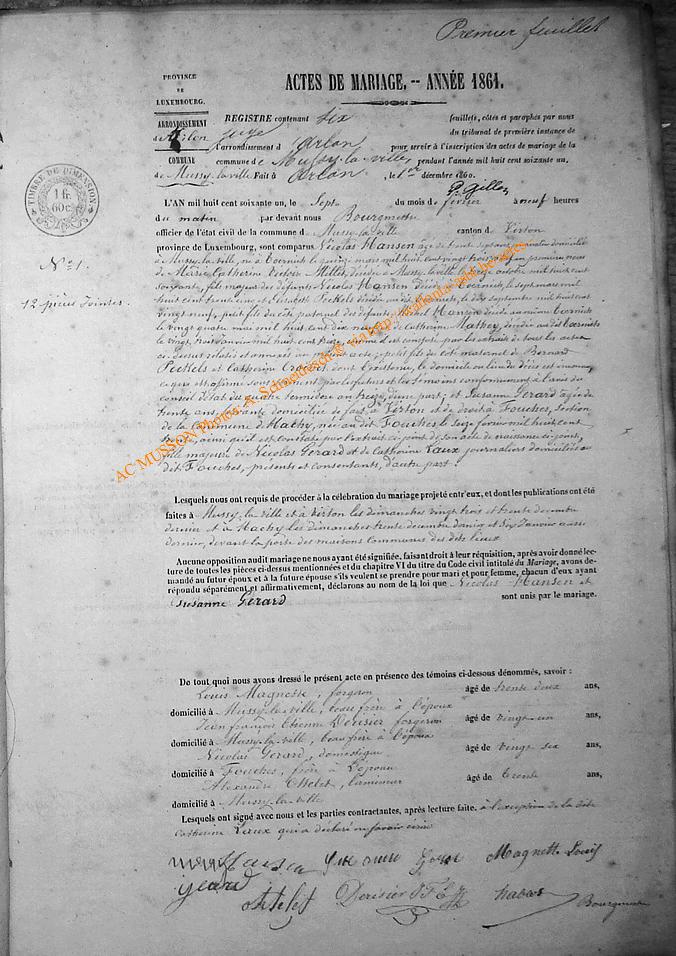 Premier feuillet
PROVINCE
DE
LUXEMBOURG.
ACTES DE MARIAGE, -- ANNÉE 1861.
ARRONDISSEMENT
d'Arlon
COMMUNE
de Mussy-la-ville
REGISTRE contenant six feuillets, côtés et paraphés par nous
juge du tribunal de première instance de
l'arrondissement d'Arlon pour servir à l'inscription des actes de mariage de la
commune de Mussy-la-ville pendant l'année mil huit cent soixante un.
Fait à Arlon, le 1er décembre 1860.
TIMBRE DE DIMENSION
1 fr.
60c.
N° 1.
12 pièces jointes.
L'AN mil huit cent soixante un, le Sept du mois de février à neuf heures
du matin par devant nous Bourgmestre
officier de l'état civil de la commune de Mussy-la-ville canton de Virton
province de Luxembourg, sont comparus Nicolas Hansen âgé de trente sept ans, domicilié
à Mussy-la-ville, né à le quinze mars mil huit cent vingt trois, veuf en premières noces
de Marie Catherine Millet, décédée à Mussy-la-ville le octobre mil huit cent
soixante, fils majeur des défunts Nicolas Hansen décédé à le sept mars mil
huit cent trente cinq et Elisabeth décédée au dit le dix septembre mil huit cent
vingt neuf, petit fils du côté paternel des défunts Hansen décédé au même
le vingt quatre mai mil huit cent dix neuf et de Catherine Mathey, décédée au dit
le vingt trois janvier mil huit cent treize, comme il est constaté par les extraits de tous les actes
ci-dessus relatés et annexés au présent acte; petit fils du côté maternel de Bernard
et Catherine dont l'existence, le domicile ou lieu du décès est inconnu,
ce qui est affirmé sous serment par le futur et les témoins conformément à l'avis du
conseil d'état du quatre thermidor an treize, d'une part; et Susanne Gérard âgée de
trente ans, servante domiciliée de fait à Virton et de droit à Fouches, section
de la Commune de Hachy, née au dit Fouches le Seize février mil huit cent
ainsi qu'il est constaté par l'extrait de son acte de naissance ci-joint,
fille majeure de Nicolas Gérard et de Catherine Laux journaliers domiciliés au
dit Fouches, présents et consentants, d'autre part.
Lesquels nous ont requis de procéder à la célébration du mariage projeté entr'eux, et dont les publications ont été
faites à Mussy-la-ville et à Virton les dimanches vingt trois et trente décembre
dernier et à Hachy les dimanches trente décembre dernier et Six Janvier aussi
dernier, devant la porte des maisons Communes des dits lieux
Aucune opposition audit mariage ne nous ayant été signifiée, faisant droit à leur réquisition, après avoir donné lec-
ture de toutes les pièces ci-dessus mentionnées et du chapitre VI du titre du Code civil intitulé du Mariage, avons de-
mandé au futur époux et à la future épouse s'ils veulent se prendre pour mari et pour femme, chacun d'eux ayant
répondu séparément et affirmativement, déclarons au nom de la loi que Nicolas Hansen et
Susanne Gérard sont unis par le mariage.
De tout quoi nous avons dressé le présent acte en présence des témoins ci-dessous dénommés, savoir :
Louis Magnette, forgeron âgé de trente deux ans,
domicilié à Mussy-la-ville, beau frère à l'époux
Jean françois Etienne Derisier forgeron âgé de vingt-un ans,
domicilié à Mussy-la-ville, beau frère à l'époux
Nicolas Gérard, domestique âgé de vingt six ans,
domicilié à Fouches, frère à l'épouse
Alexandre Thelet, âgé de trente ans,
domicilié à Mussy-la-ville
Lesquels ont signé avec nous et les parties contractantes, après lecture faite. à l'exception de la dite
Catherine Laux qui a déclaré ne savoir écrire
Hansen Susanne Gérard Magnette Louis
gerard
Derisier J F E Bourgmestre
AC MUSSON Photos A. Schneidesch © via http://wallonia-asbl.be/actes/